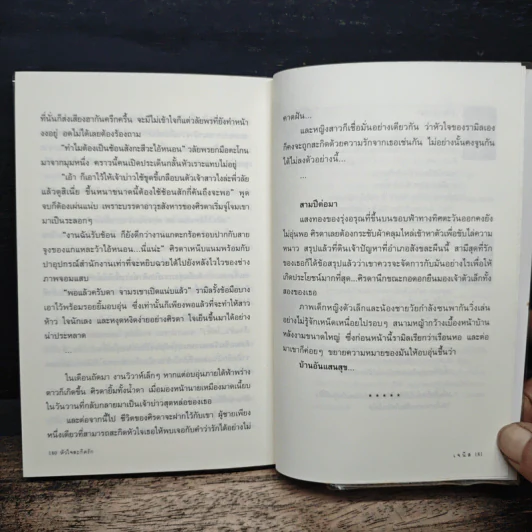 ที่นั่นก็ส่งเสียงฮากันครึกครื้น จะมีไม่เข้าใจก็แต่วลัยพรที่ยังทำหน้า
งงอยู่ อดไม่ได้เลยต้องร้องถาม
“ทำไมต้องเป็นช้อนสังกะสีวะไอ้หนอน” วลัยพรยกมือตะโกน
มาจากมุมหนึ่ง คราวนี้คนเปิดประเด็นกลั้นหัวเราะแทบไม่อยู่
“เอ้า ก็เอาไว้ให้เจ้าบ่าวใช้ขูดขี้เกลือบนตัวเจ้าสาวไงล่ะพี่วลัย
แล้วดูสิเนี่ย ขี้หนาขนาดนี้ต้องใช้ช้อนสักกี่คันถึงจะพอ” พูด
จบก็ต้องเผ่นแน่บ เพราะบรรดาอาวุธสังหารของศิรดาเริ่มจู่โจมเขา
มาเป็นระลอกๆ
“งานฉันรับช้อน ก็ยังดีกว่างานแกตะกร้อครอบปากกับสาย
จูงของแกเหอะว้าไอ้หนอน...นี่แน่ะ” ศิรดาเหน็บแนมพร้อมกับ
ปาอุปกรณ์สำนักงานเท่าที่จะหยิบฉวยได้ไปยังหลังไวๆ ของช่าง
ภาพจอมแสบ
“พอแล้วครับดา จามรเขาเปิดแน่บแล้ว” รามิลรั้งข้อมือบาง
เอาไว้พร้อมรอยยิ้มอบอุ่น ซึ่งเท่านั้นก็เพียงพอแล้วที่จะทำให้สาว
ห้าว ใจนักเลง และหงุดหงิดง่ายอย่างศิรดา ใจเย็นขึ้นมาได้อย่าง
น่าประหลาด
...
ในเดือนถัดมา งานวิวาห์เล็กๆ หากแต่อบอุ่นภายใต้ฟ้าพร่าง
ดาวก็เกิดขึ้น ศิรดายิ้มทั้งน้ำตา เมื่อมองหน้านายเหมืองมาดเนี้ยบ
ในวันวานที่กลับกลายมาเป็นเจ้าบ่าวสุดหล่อของเธอ
และต่อจากนี้ไป ชีวิตของศิรดาจะฝากไว้กับเขา ผู้ชายเพียง
หนึ่งเดียวที่สามารถสะกิดหัวใจเธอให้พบเจอกับคำว่ารักได้อย่างไม่
180 หัวใจสะกิดรัก
คาดฝัน...
และหญิงสาวก็เชื่อมั่นอย่างเดียวกัน ว่าหัวใจของรามิลเอง
ก็คงจะถูกสะกิดด้วยความรักจากเธอเช่นกัน ไม่อย่างนั้นคงจูนกัน
ได้ไม่ลงตัวอย่างนี้...
...
สามปีต่อมา
แสงทองของรุ่งอรุณที่ขึ้นบนขอบฟ้าทางทิศตะวันออกคงยัง
ไม่อุ่นพอ ศิรดาเลยต้องกระชับผ้าคลุมไหล่เข้าหาตัวเพื่อขับไล่ความ
หนาว สรุปแล้วที่ดินเจ้าปัญหาที่อำเภอสังขละผืนนี้ สามีสุดที่รัก
ของเธอก็ได้ข้อสรุปแล้วว่าเขาควรจะจัดการกับมันอย่างไรเพื่อให้
เกิดประโยชน์มากที่สุด...ศิรดานึกขณะกอดอกยืนมองเจ้าตัวเล็กทั้ง
สองของเธอ
ภาพเด็กหญิงตัวเล็กและน้องชายวัยกำลังซนพากันวิ่งเล่น
อย่างไม่รู้จักเหน็ดเหนื่อยไปรอบๆ สนามหญ้ากว้างเบื้องหน้าบ้าน
หลังงามขนาดใหญ่ ซึ่งก่อนหน้านี้รามิลเรียกว่าเรือนหอ และต่อ
มาเขาก็ค่อยๆ ขยายความหมายของมันให้อบอุ่นขึ้นว่า
บ้านอันแสนสุข...
* * * * *
เจนิส 181